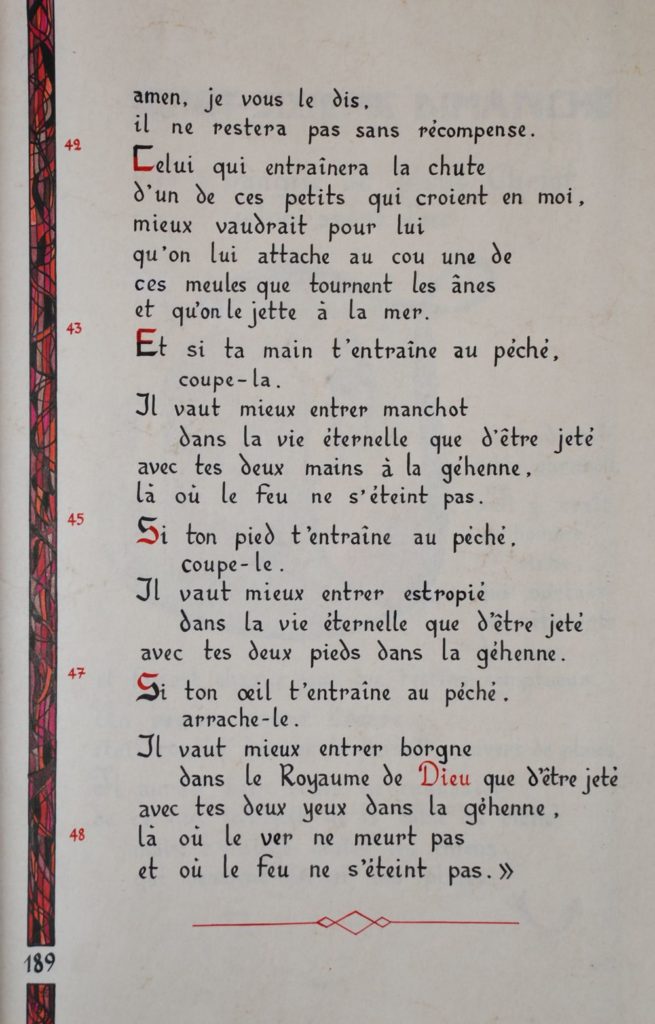 amen, je vous le dis,
il ne restera pas sans récompense.
42
Celui qui entraînera la chute
d'un de ces petits qui croient en moi,
mieux vaudrait pour lui
qu'on lui attache au cou une de
ces meules que tournent les ânes
et qu'on le jette à la mer.
43
Et si ta main t'entraîne au péché,
coupe-la.
Il vaut mieux entrer manchot
dans la vie éternelle que d'être jeté
avec tes deux mains à la géhenne,
là où le feu ne s'éteint pas.
45
Si ton pied t'entraîne au péché,
coupe-le.
Il vaut mieux entrer estropié
dans la vie éternelle que d'être jeté
avec tes deux pieds dans la géhenne.
47
Si ton œil t'entraîne au péché,
arrache-le.
Il vaut mieux entrer borgne
dans le Royaume de Dieu que d'être jeté
avec tes deux yeux dans la géhenne,
48
là où le ver ne meurt pas
et où le feu ne s'éteint pas.»
189